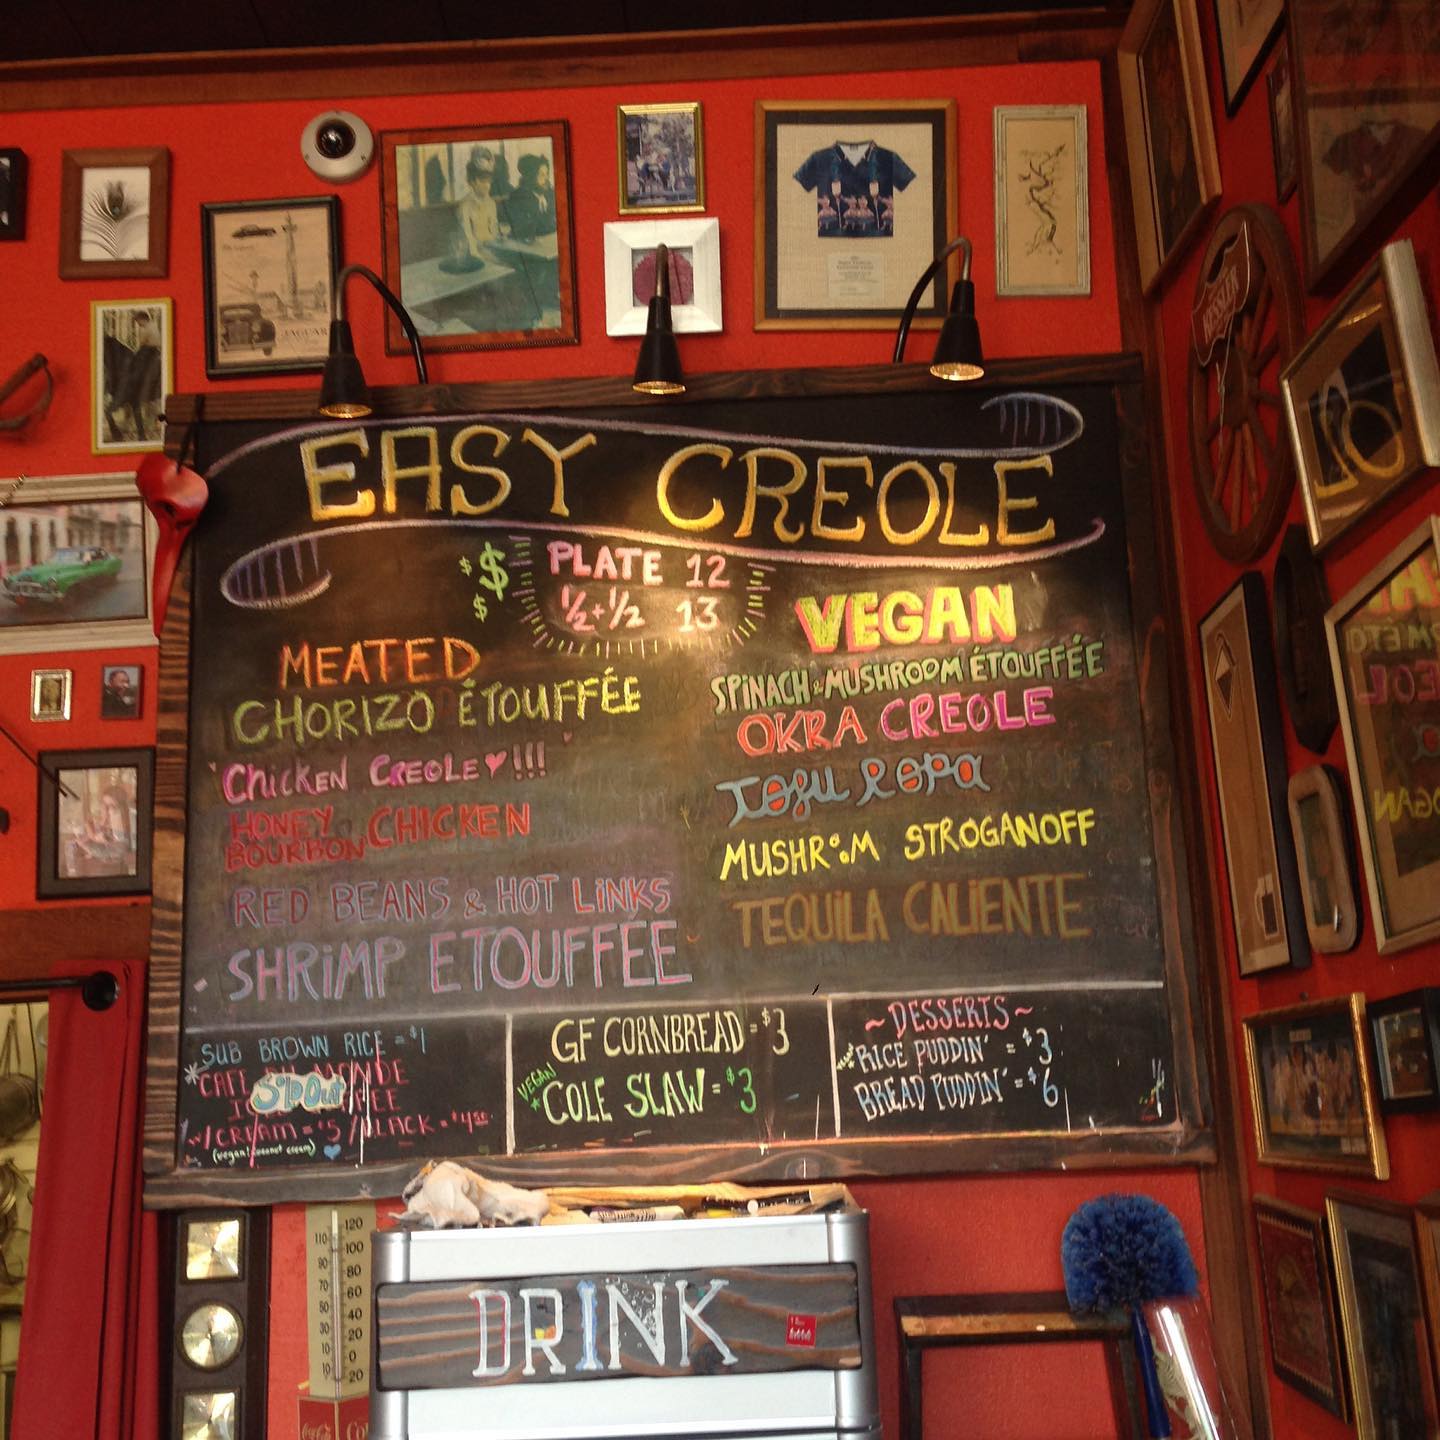 EASY CREOLE
$ $ $
PLATE 12
½+½ 13
MEATED
CHORIZO ÉTOUFFÉE
CHICKEN CREOLE ♥ !!!
HONEY BOURBON CHICKEN
RED BEANS & HOT LINKS
SHRIMP ETOUFFÉE
VEGAN
SPINACH & MUSHROOM ÉTOUFFÉE
OKRA CREOLE
TOFU ROPA
MUSHROOM STROGANOFF
TEQUILA CALIENTE
SUB BROWN RICE = $1
*CAFE DU MONDE
Sold Out
W/ CREAM = $5 / BLACK = $4.50
(vegan! coconut cream)
GF CORNBREAD = $3
VEGAN
* COLE SLAW = $3
~DESSERTS~
RICE PUDDIN' = $3
BREAD PUDDIN' = $6
DRINK
JAGUAR
KESSLER
120
110
100
90
80
70
60
50
40
30
20
10
0
10
20
Coca-Cola